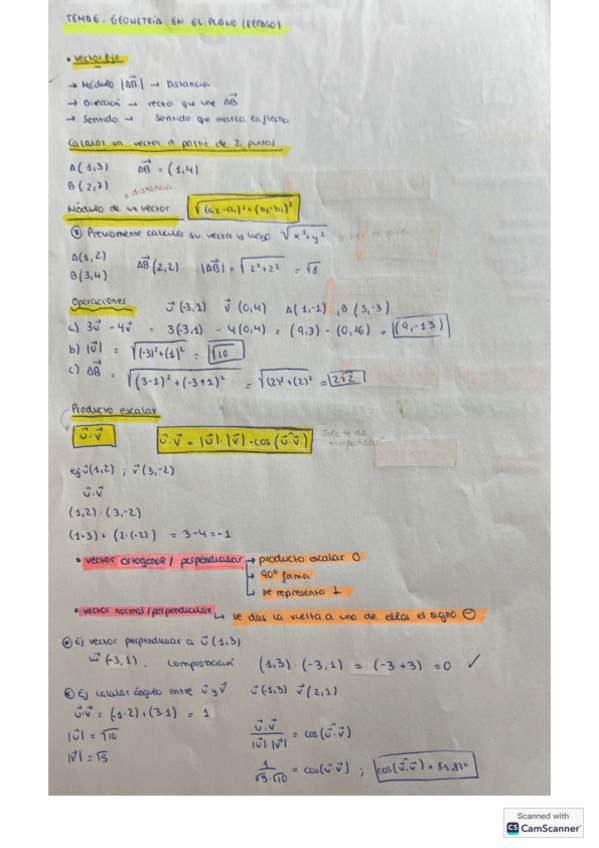 TEMA 6. GEOMETRÍA EN EL PLANO (REPASO)
• vector fijo
→ Módulo |AB| → Distancia
→ Dirección → recta que une AB
→ Sentido → Sentido que marca la flecha
Calcular un vector a partir de 2 puntos
A(1,3) AB = (1,4)
B(2,7)
• distancia
Módulo de un vector √(a2-a1)²+(b2-b1)²
Previamente calcular su vector y luego √x²+y²
A(1,2)
B(3,4) AB(2,2) |AB| = √2²+2² = √8
Operaciones u(-3,1) v(0,4) A(1,-1), B(3,-3)
a) 3u - 4v = 3(-3,1) - 4(0,4) = (9,3) - (0,16) = (9,-13)
b) |u| = √(-3)²+(1)² = √10
c) AB = √(3-1)²+(-3+1)² = √(2)²+(2)² = 2√2
Producto escalar
u·v u·v = |u|·|v|·cos(u·v) Solo 4 de
ej u(1,2) ; v(3,-2)
u·v
(1,2)·(3,-2)
(1·3) + (2·(-2)) = 3-4=-1
• vector ortogonal / perpendicular → producto escalar 0
→ 90º forma
→ se representa ⊥
• vector normal/perpendicular → le das la vuelta a uno de ellos el signo ⊖
Ej vector perpendicular a u(1,3)
w(-3,1). Comprobación (1,3)·(-3,1) = (-3+3) = 0 ✓
Ej calcular ángulo entre u y v u(-1,3) v(2,1)
u·v = (-1·2)+(3·1) = 1
|u| = √10
|v| = √5
u·v / |u|·|v| = cos(u·v)
1 / √5·√10 = cos(u·v) ; cos(u·v) = 81,87º
Scanned with
CS CamScanner